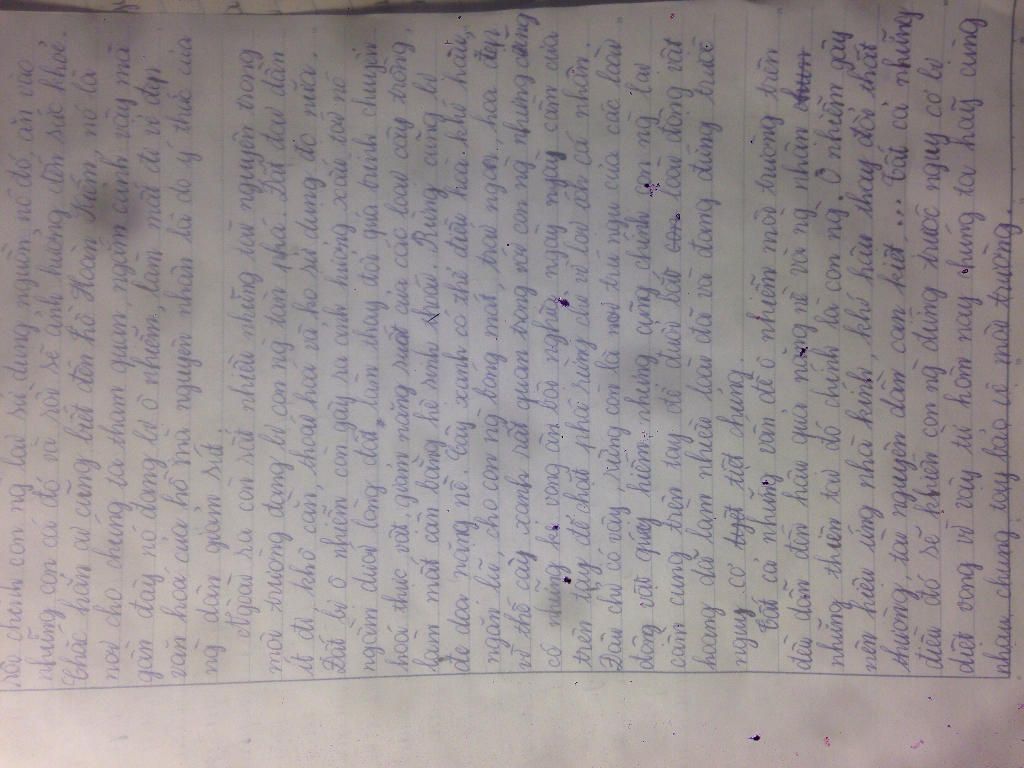 chính con ng lại sử dụng nguồn nc đó, ăn vào
những con cá đó và rồi sẽ ảnh hưởng đến sức khoẻ.
Chắc hẳn ai cũng biết đến hồ Hoàn Kiếm, nó là
nơi cho chúng ta tham quan, ngắm cảnh vậy mà
gần đây nó đang bị ô nhiễm, làm mất đi vẻ đẹp
văn hoá của hồ mà nguyên nhân là do ý thức của
ng dân giảm sút.
Ngoài ra còn rất nhiều những tài nguyên trong
môi trường đang bị con ng tàn phá. Đất đai dần
ít đi, khô cằn, thoái hoá và họ sử dụng đó nữa.
Đất bị ô nhiễm còn gây ra ảnh hưởng xấu tới nc
ngầm dưới lòng đất, làm thay đổi quá trình chuyển
hoá thực vật, giảm năng suất của các loại cây trồng,
làm mất cân bằng hệ sinh thái. Rừng cũng bị
đe doạ nặng nề. Cây xanh có thể điều hoà khí hậu,
ngăn lũ, cho con ng bóng mát, trái ngon, hoa đẹp
vì thế cây xanh rất quan trọng với con ng nhưng cũng
có những kẻ vong ân bội nghĩa, ngày ngày cầm cưa
trên tay để chặt phá rừng chỉ vì lợi ích cá nhân.
Đâu chỉ có vậy, rừng còn là nơi trú ngụ của các loài
động vật quý hiếm nhưng cũng chính con ng lại
cầm cung trên tay để đuổi bắt loài động vật
hoang dã làm nhiều loài đã và đang đứng trước
nguy cơ tiệt chủng.
Tất cả những vấn đề ô nhiễm môi trường trên
đều dẫn đến hậu quả nặng nề và ng nhận
những thiên tai đó chính là con ng. Ô nhiễm gây
nên hiệu ứng nhà kính, khí hậu thay đổi thất
thường, tài nguyên dần cạn kiệt ... Tất cả những
điều đó sẽ khiến con ng đứng trước nguy cơ bị
diệt vong vì vậy từ hôm nay chúng ta hãy cùng
nhau chung tay bảo vệ môi trường.